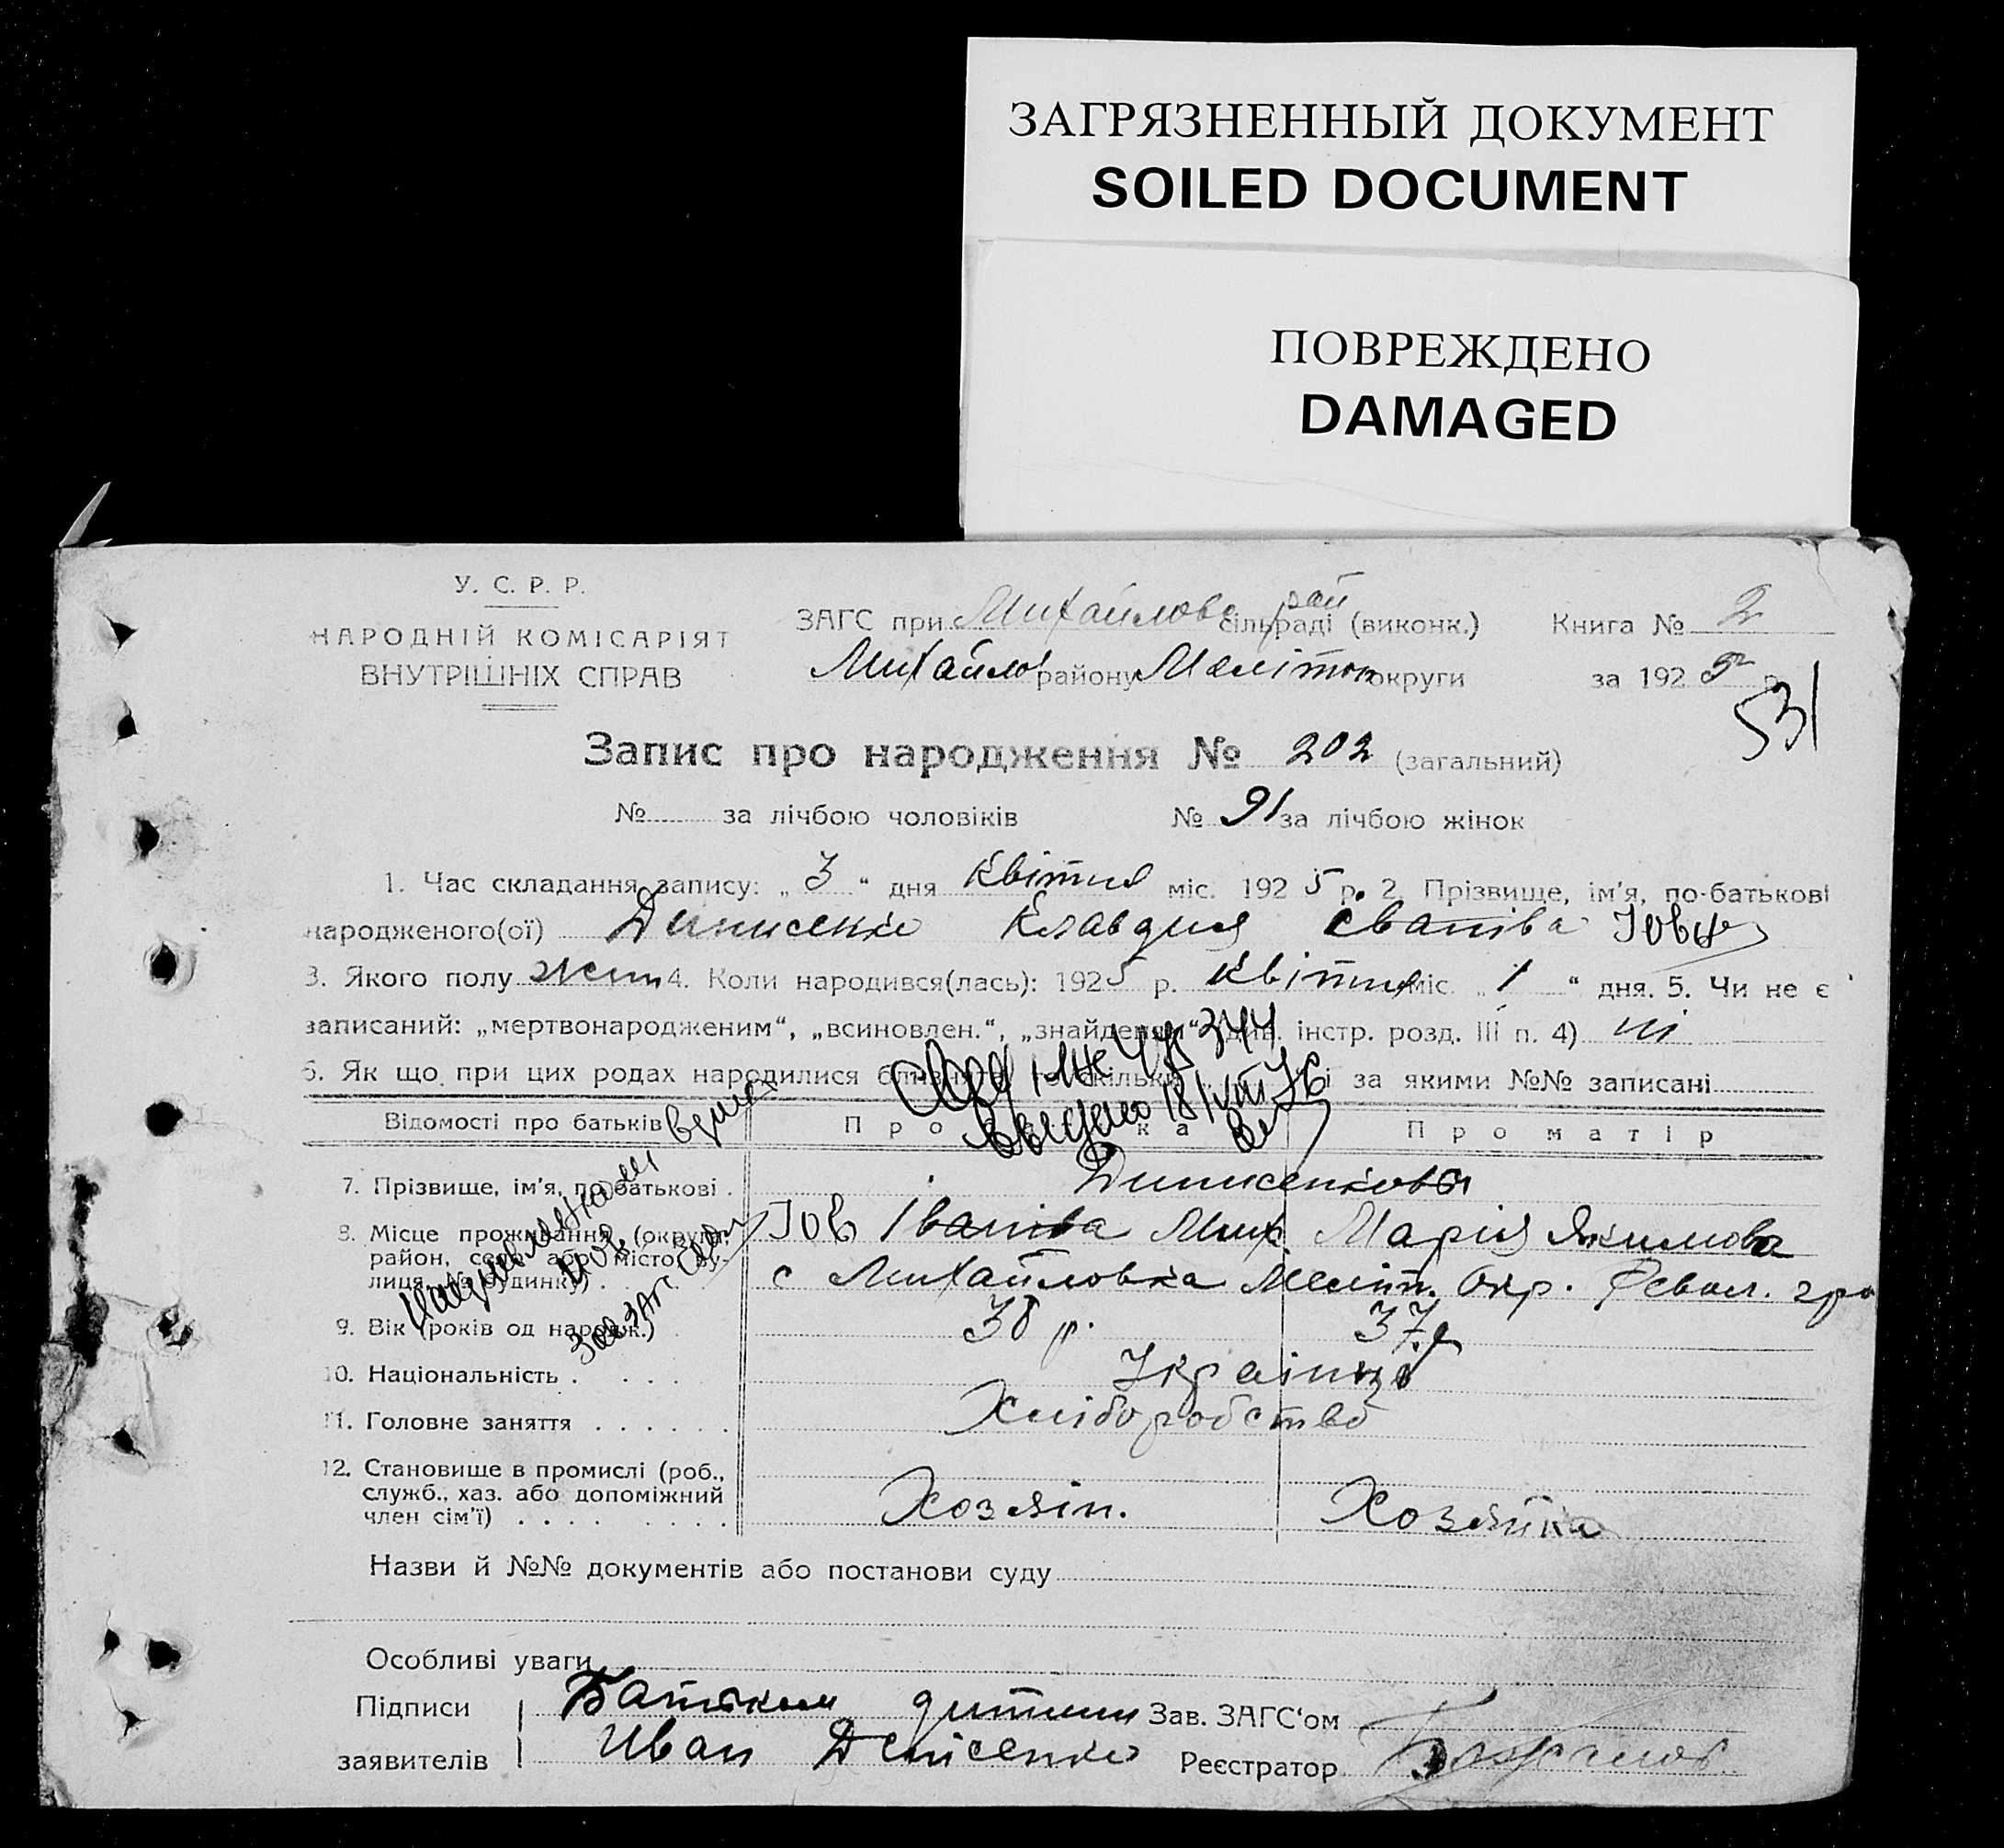 ЗАГРЯЗНЕННЫЙ ДОКУМЕНТ
SOILED DOCUMENT
ПОВРЕЖДЕНО
DAMAGED
У. С. Р. Р.
НАРОДНІЙ КОМІСАРІЯТ
ВНУТРІШНІХ СПРАВ
ЗАГС при Михайлово рай сільраді (виконк.)
Михайлов району Мелітоп округи
Книга № 2
за 1925 р.
531
Запис про народження № 202 (загальний)
№ за лічбою чоловіків № 91 за лічбою жінок
1. Час складання запису: „ 3 “ дня Квітня міс. 1925 р. 2. Прізвище, ім'я, по-батькові
народженого(ої) Динисенко Клавдия Іванівa Іовна
3. Якого полу жін 4. Коли народився(лась): 1925 р. Квітня міс. „ 1 “ дня. 5. Чи не є
записаний: „мертвонародженим“, „всиновлен.“, „знайденим“ див. інстр. розд. III п. 4) ні
6. Як що при цих родах народилися скільки і за якими №№ записані
344
Введено 18/VIII 76
Відомості про батьків
Про батька
Про матір
7. Прізвище, ім'я, по-батькові .
Динисенкови
Іов Іваніва Мих Марія Якимова
8. Місце проживання (округа,
район, село або місто, ву-
лиця, № будинку) .
с Михайловка Меліт. Окр. Револ. гро
9. Вік (років од народж.)
38 р. 37 р
10. Національність . . . .
Українці
11. Головне заняття . . . . . .
Хліборобство
12. Становище в промислі (роб.,
служб., хаз. або допоміжний
член сім'ї) . . . . . . . .
Хозяін. Хозяйка
Іов
Зав ЗАГС
Назви й №№ документів або постанови суду
Особливі уваги
Підписи
заявителів
Батьком дитини
Иван Денісенко
Зав. ЗАГС'ом
Реєстратор